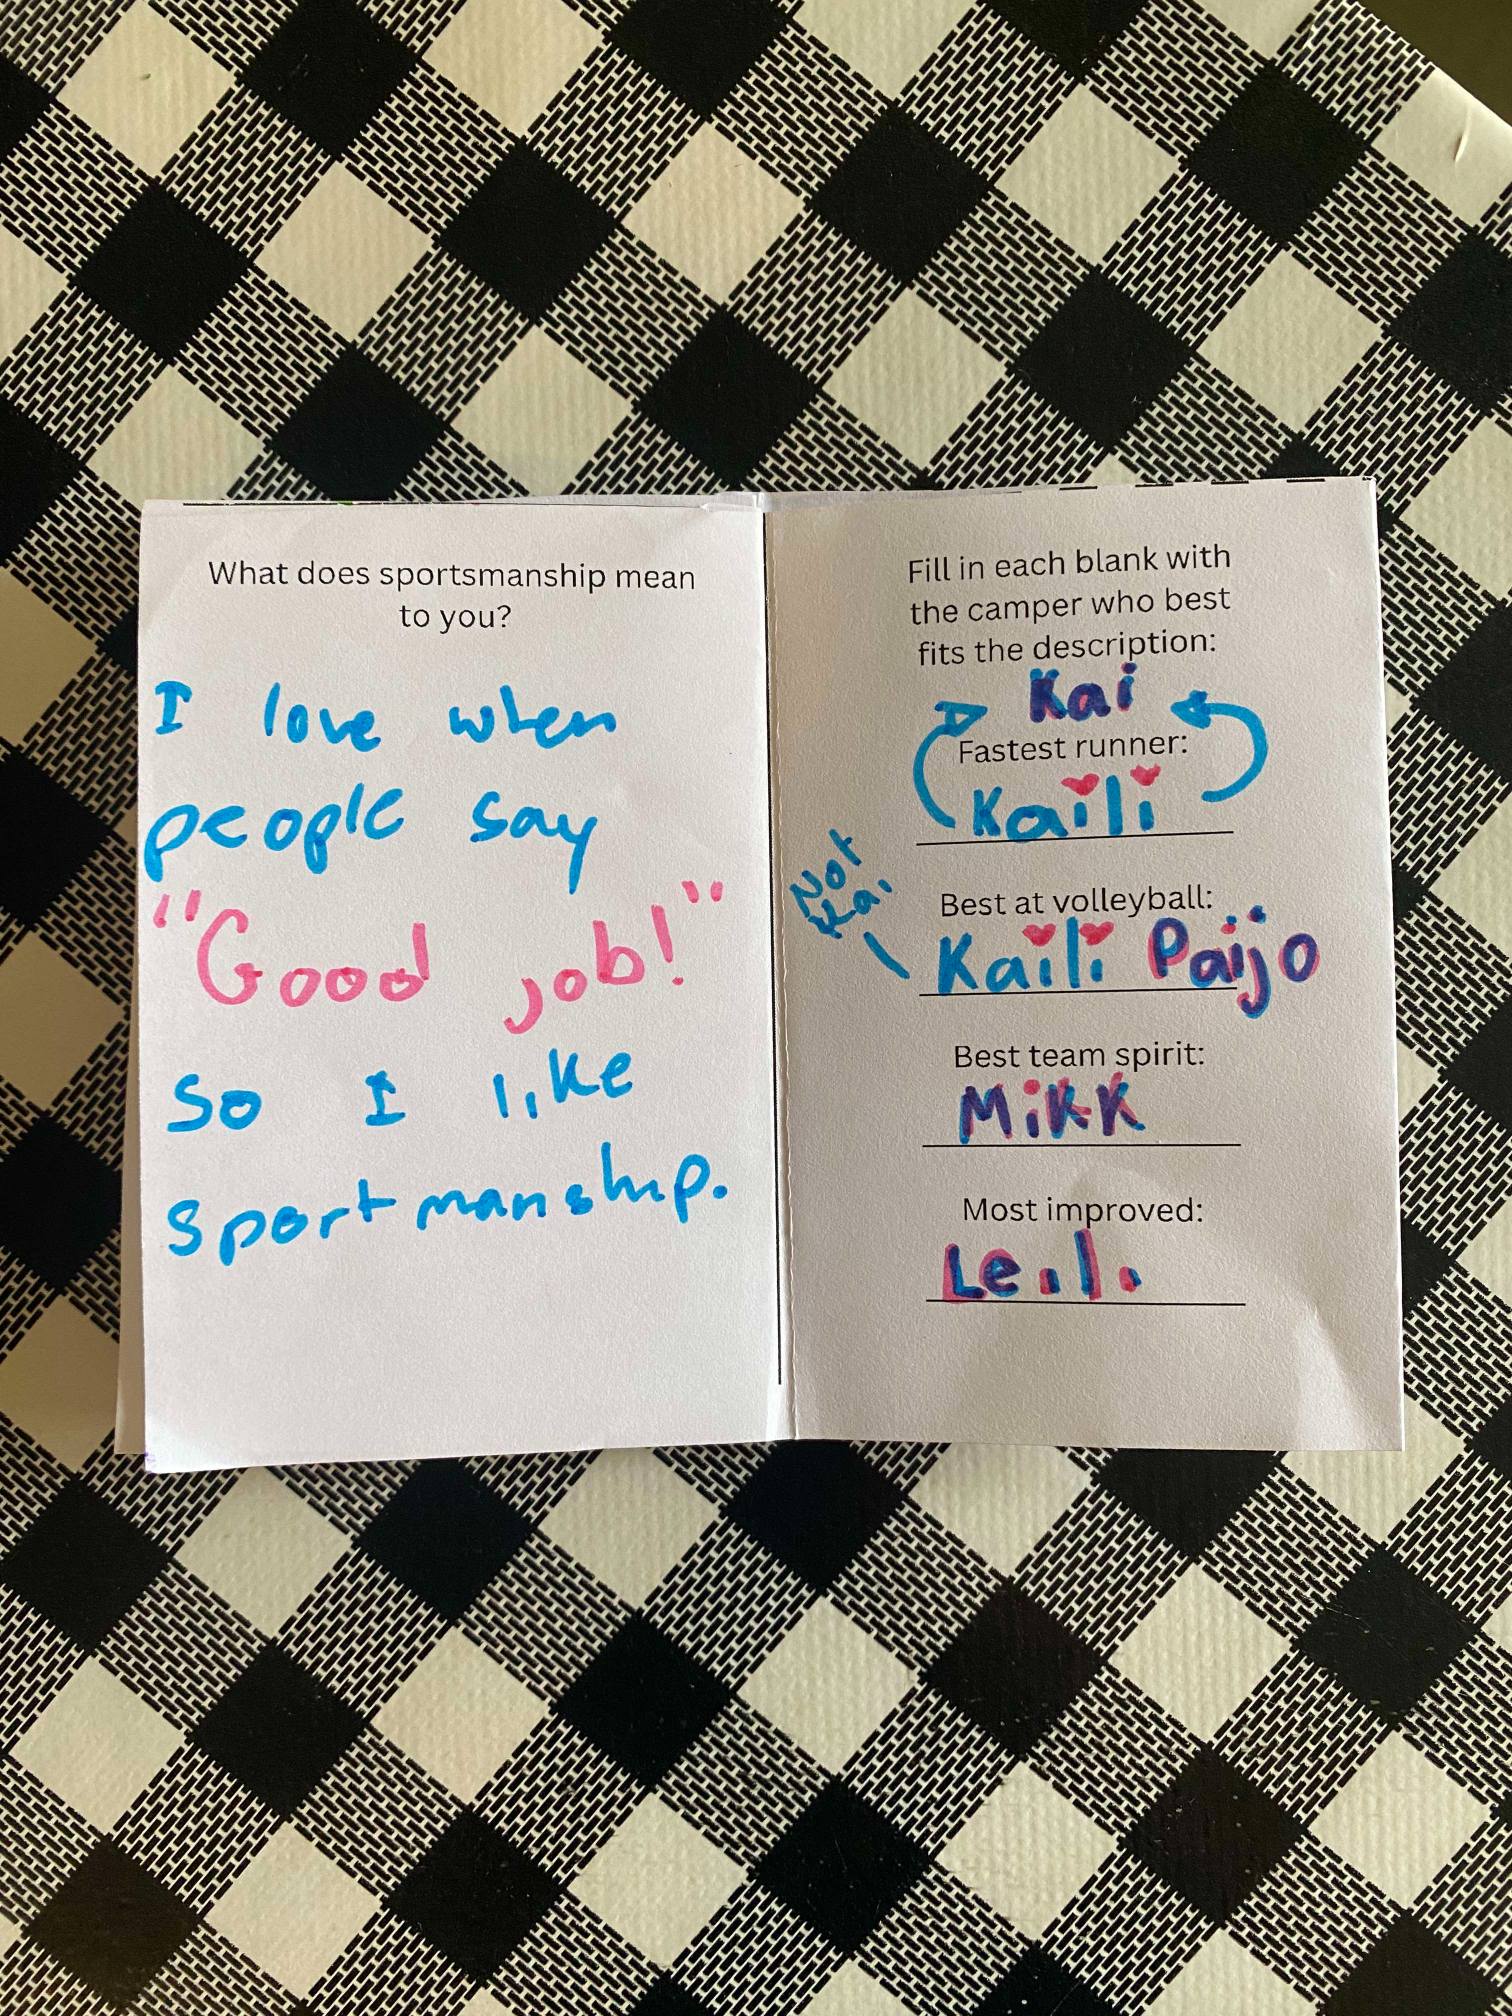 What does sportsmanship mean
to you?
I love when
people say
"Good job!"
So I like
sportmanship.
Fill in each blank with
the camper who best
fits the description:
Kai
Fastest runner:
Kaili
Best at volleyball:
Not
Kai
Kaili Paijo
Best team spirit:
Mikk
Most improved:
Leili